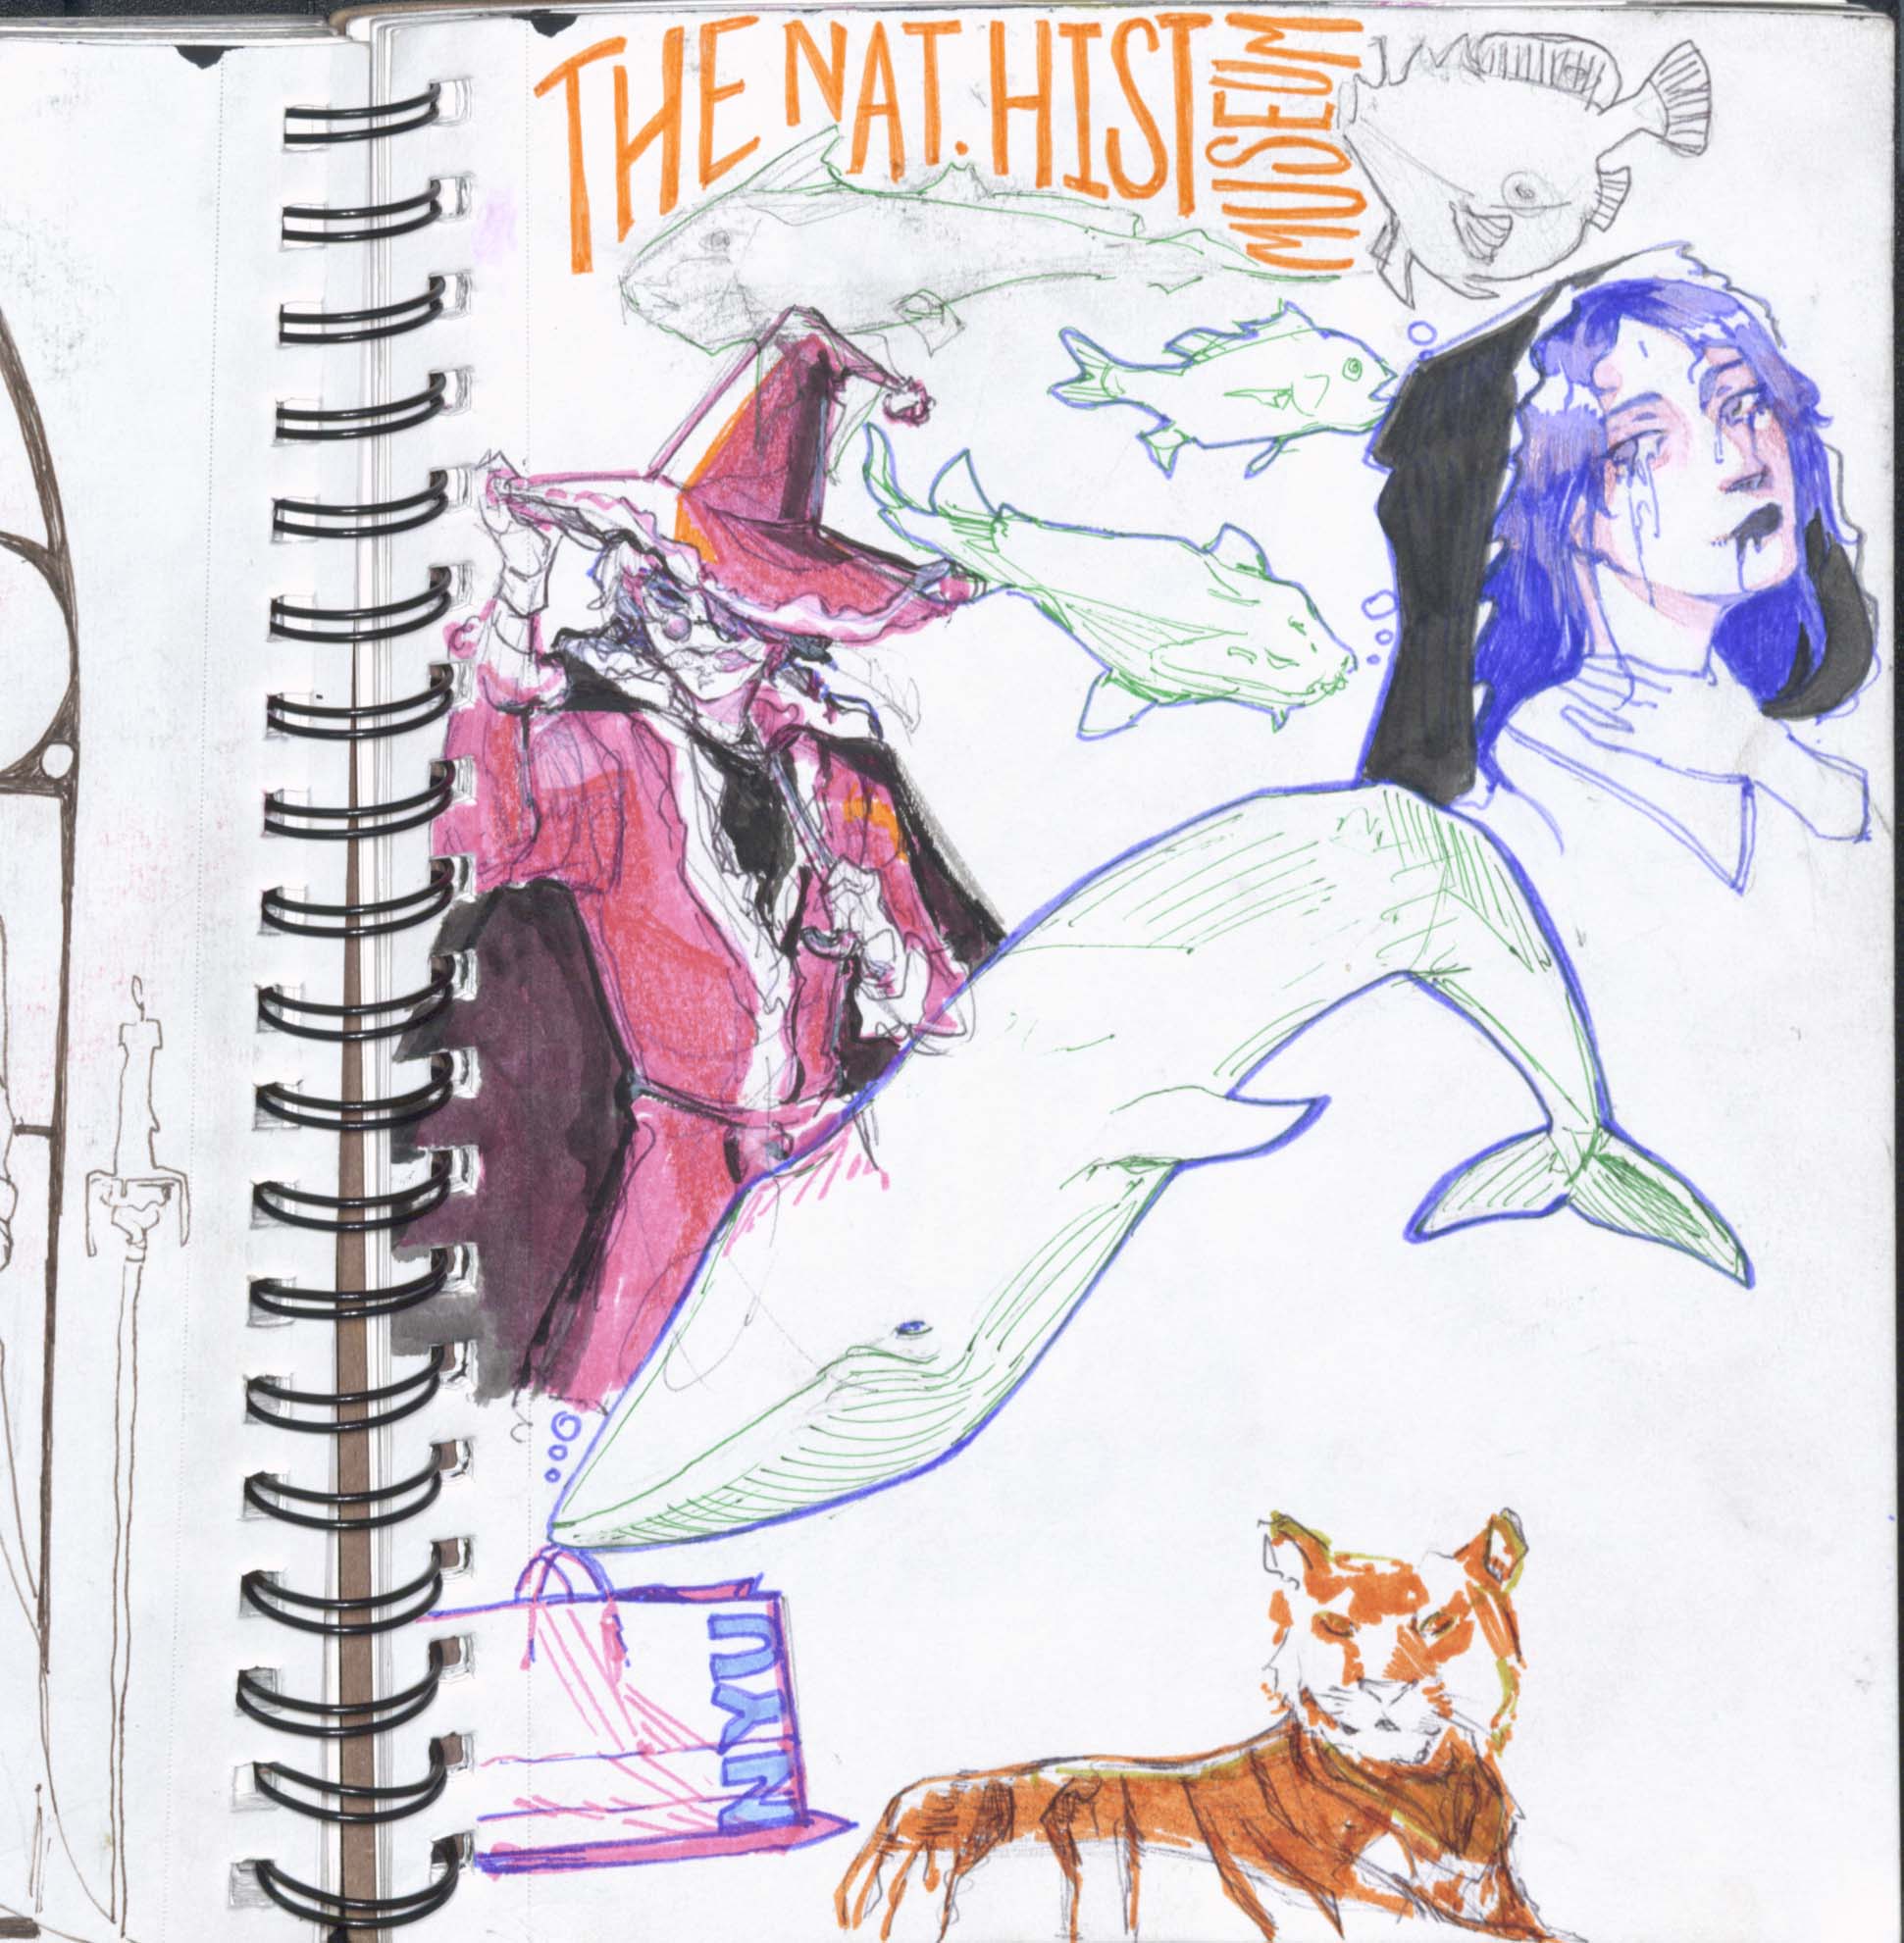 THE NAT. HIST
MUSEUM
NYU